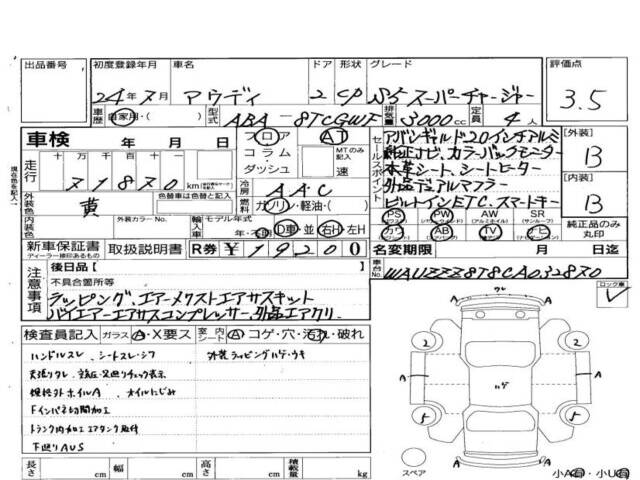 出品番号 初度登録年月 車名 ドア 形状 グレード 評価点
24年7月 アウディ 2 CP S5 スーパーチャージャー 3.5
車歴 自家用・( ) 型式 ABA-8TCGWF 排気量 3000cc 定員 4人
車検 年 月 日
フロア AT
コラム・ダッシュ MTのみ記入 速
走行 十万 千 百 十
71870km
外装色 黄 色替車は色替と記入
外装カラーNo.
冷房 AAC
燃料 ガソリン・軽油・( )
輸入車 モデル年式 年・ D車・並 右H・左H
セールスポイント
アバンギャルド20インチアルミ
純正ナビ、カラーバックモニター
本革シート、シートヒーター
外品デュアルマフラー
ビルトインETC、スマートキー
[外装] B
[内装] B
PS PW AW SR
カワ AB TV ナビ
純正品のみ丸印
新車保証書 取扱説明書 R券 ¥19200
ディーラー捺印あるもの
名変期限 月 日迄
車台No. WAUZZZ8T8CA032870
注意事項
後日品[ ]
不具合箇所等
ラッピング、エアーメクストエアサスキット
バイエアーエアサスコンプレッサー、外品エアクリ
ロック車
検査員記入 ガラス A・X要ス 室内シート A コゲ・穴・汚れ・破れ
ハンドルスレ、シートスレ・シワ 外装ラッピングハゲ・ウキ
天張りタレ、
規格外ホイルA、オイルにじみ
Fインパネ切開加工
トランク内加工エアタンク取付
下廻りAUS
ウレ
2 2
A A A A
ハゲ
5 5
A
スペア
小A・小U
長さ cm 幅 cm 高さ cm 積載量 kg